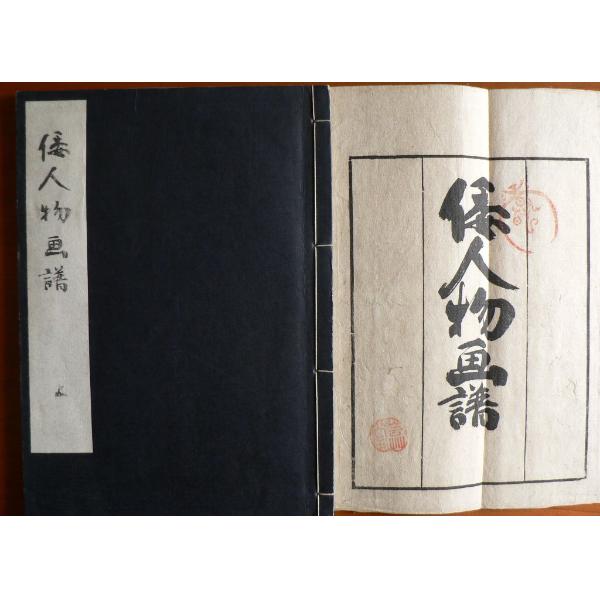 倭人物画譜
倭人物画譜